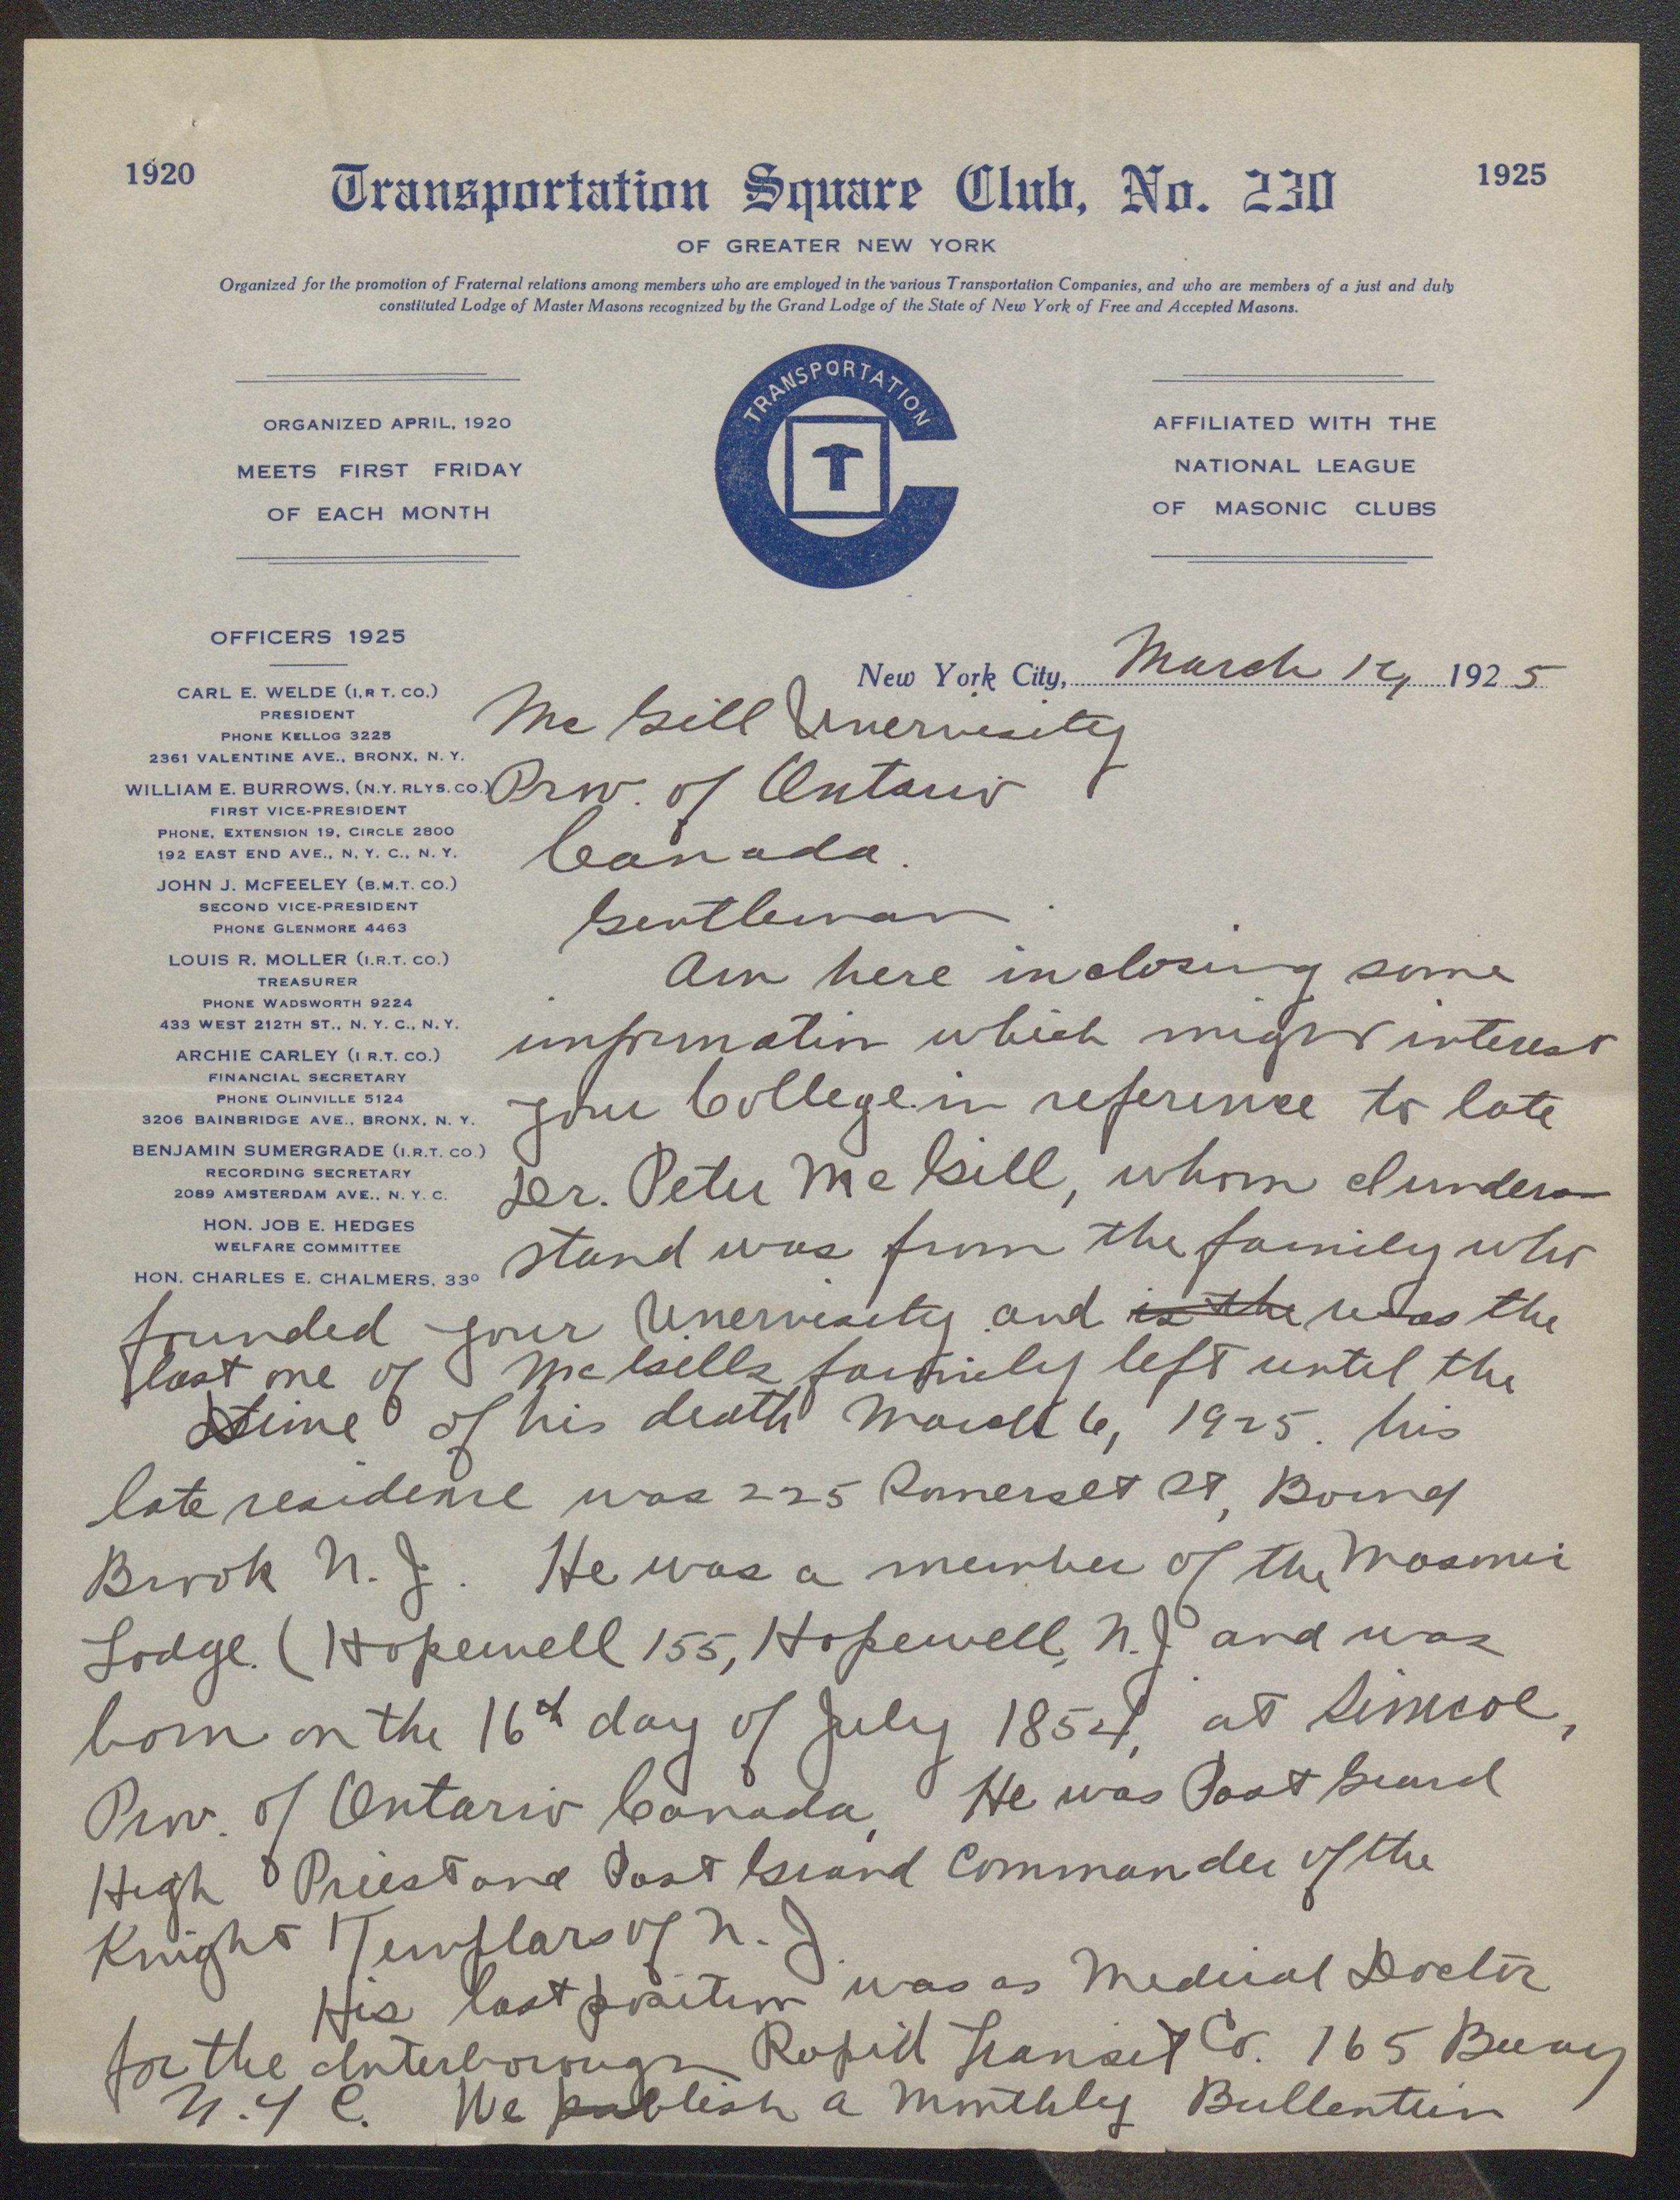 1920
Transportation Square Club, No. 230
1925
OF GREATER NEW YORK
Organized for the promotion of Fraternal relations among members who are employed in the various Transportation Companies, and who are members of a just and duly
constituted Lodge of Master Masons recognized by the Grand Lodge of the State of New York of Free and Accepted Masons.
ORGANIZED APRIL, 1920
MEETS FIRST FRIDAY
OF EACH MONTH
TRANSPORTATION
T
AFFILIATED WITH THE
NATIONAL LEAGUE
OF MASONIC CLUBS
OFFICERS 1925
CARL E. WELDE (I.R T. CO.)
PRESIDENT
PHONE KELLOG 3225
2361 VALENTINE AVE., BRONX, N. Y.
WILLIAM E. BURROWS, (N.Y. RLYS. CO.)
FIRST VICE-PRESIDENT
PHONE, EXTENSION 19, CIRCLE 2800
192 EAST END AVE., N. Y. C., N. Y.
JOHN J. McFEELEY (B.M.T. CO.)
SECOND VICE-PRESIDENT
PHONE GLENMORE 4463
LOUIS R. MOLLER (I.R.T. CO.)
TREASURER
PHONE WADSWORTH 9224
433 WEST 212TH ST., N. Y. C., N. Y.
ARCHIE CARLEY (I R.T. CO.)
FINANCIAL SECRETARY
PHONE OLINVILLE 5124
3206 BAINBRIDGE AVE., BRONX, N. Y.
BENJAMIN SUMERGRADE (I.R.T. CO.)
RECORDING SECRETARY
2089 AMSTERDAM AVE., N. Y. C.
HON. JOB E. HEDGES
WELFARE COMMITTEE
HON. CHARLES E. CHALMERS, 33º
New York City, March 1925
Mc Gill Unervisity
Prov. of Ontario
Canada.
Gentleman.
Am here inclosing some
infrmation which might interest
your College in reference to late
Dr. Peter McGill, whom I under-
stand was from the family who
founded your Unervisity and is the was the
last one of McGills family left until the
time of his death March 6, 1925. his
late residence was 225 Somerset St, Bound
Brook N. J. He was a member of the Masonic
Lodge. (Hopewell 155, Hopewell, N. J. and was
born on the 16th day of July 1854, at Simcoe,
Prov. of Ontario Canada, He was Past Grand
High Priest and Past Grand Commander of the
Knight Templars of N. J.
His last position was as Medical Doctor
for the Interborough Rapid Transit Co. 165 Bway
N. Y C. We publish a Monthly Bullentin